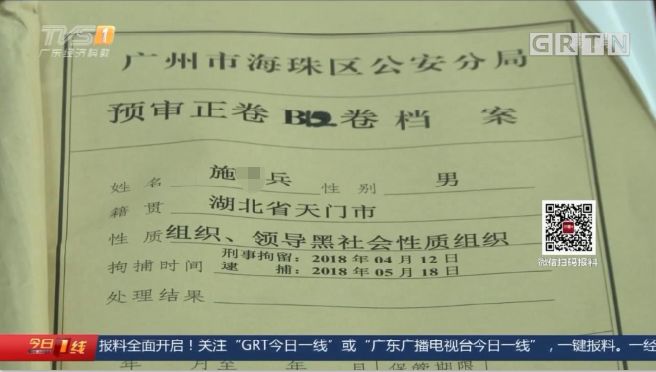 TVS 1
广东经济科教
GRTN
广州市海珠区公安分局
预审正卷 B12 卷 档 案
姓 名 施 兵 性 别 男
籍 贯 湖北省天门市
性 质 组织、领导黑社会性质组织
拘捕时间 刑事拘留：2018 年 04 月 12 日
逮 捕：2018 年 05 月 18 日
处理结果
微信扫码报料
今日一线
报料全面开启！关注“GRT今日一线”或“广东广播电视台今日一线”，一键报料。一经
年 月至 年 月 保管期限